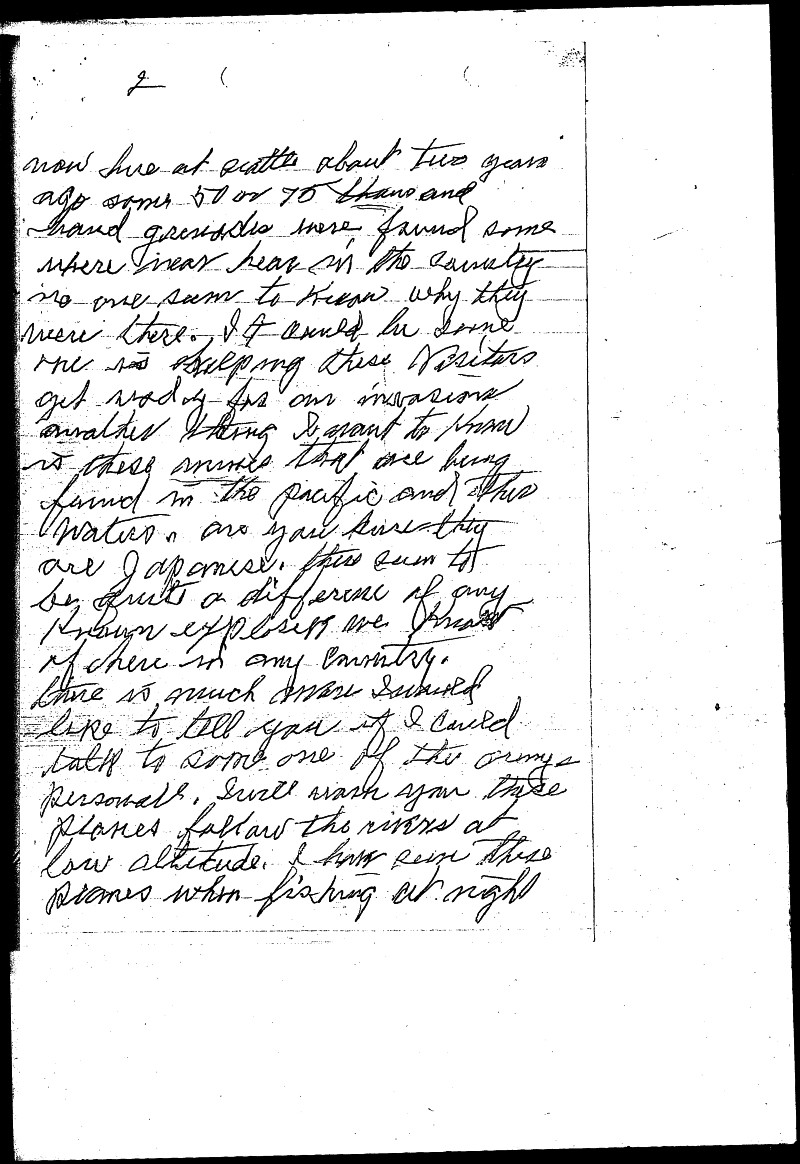 2
now here at seattle about two years
ago some 50 or 75 thousand
hand grenades were found some
where near hear in the country
no one seem to know why they
were there. It could be some
one is helping these Visitors
get ready for an invasion
another thing I want to know
is these mines that are being
found in the pacific and other
waters. are you sure they
are Japanese. this seem to
be quite a difference of any
known we know
of here in any country.
there is much more I would
like to tell you if I could
talk to some one of the army
personall. I will warn you these
planes follow the rivers at
low altitude. I have seen these
planes when fishing at night